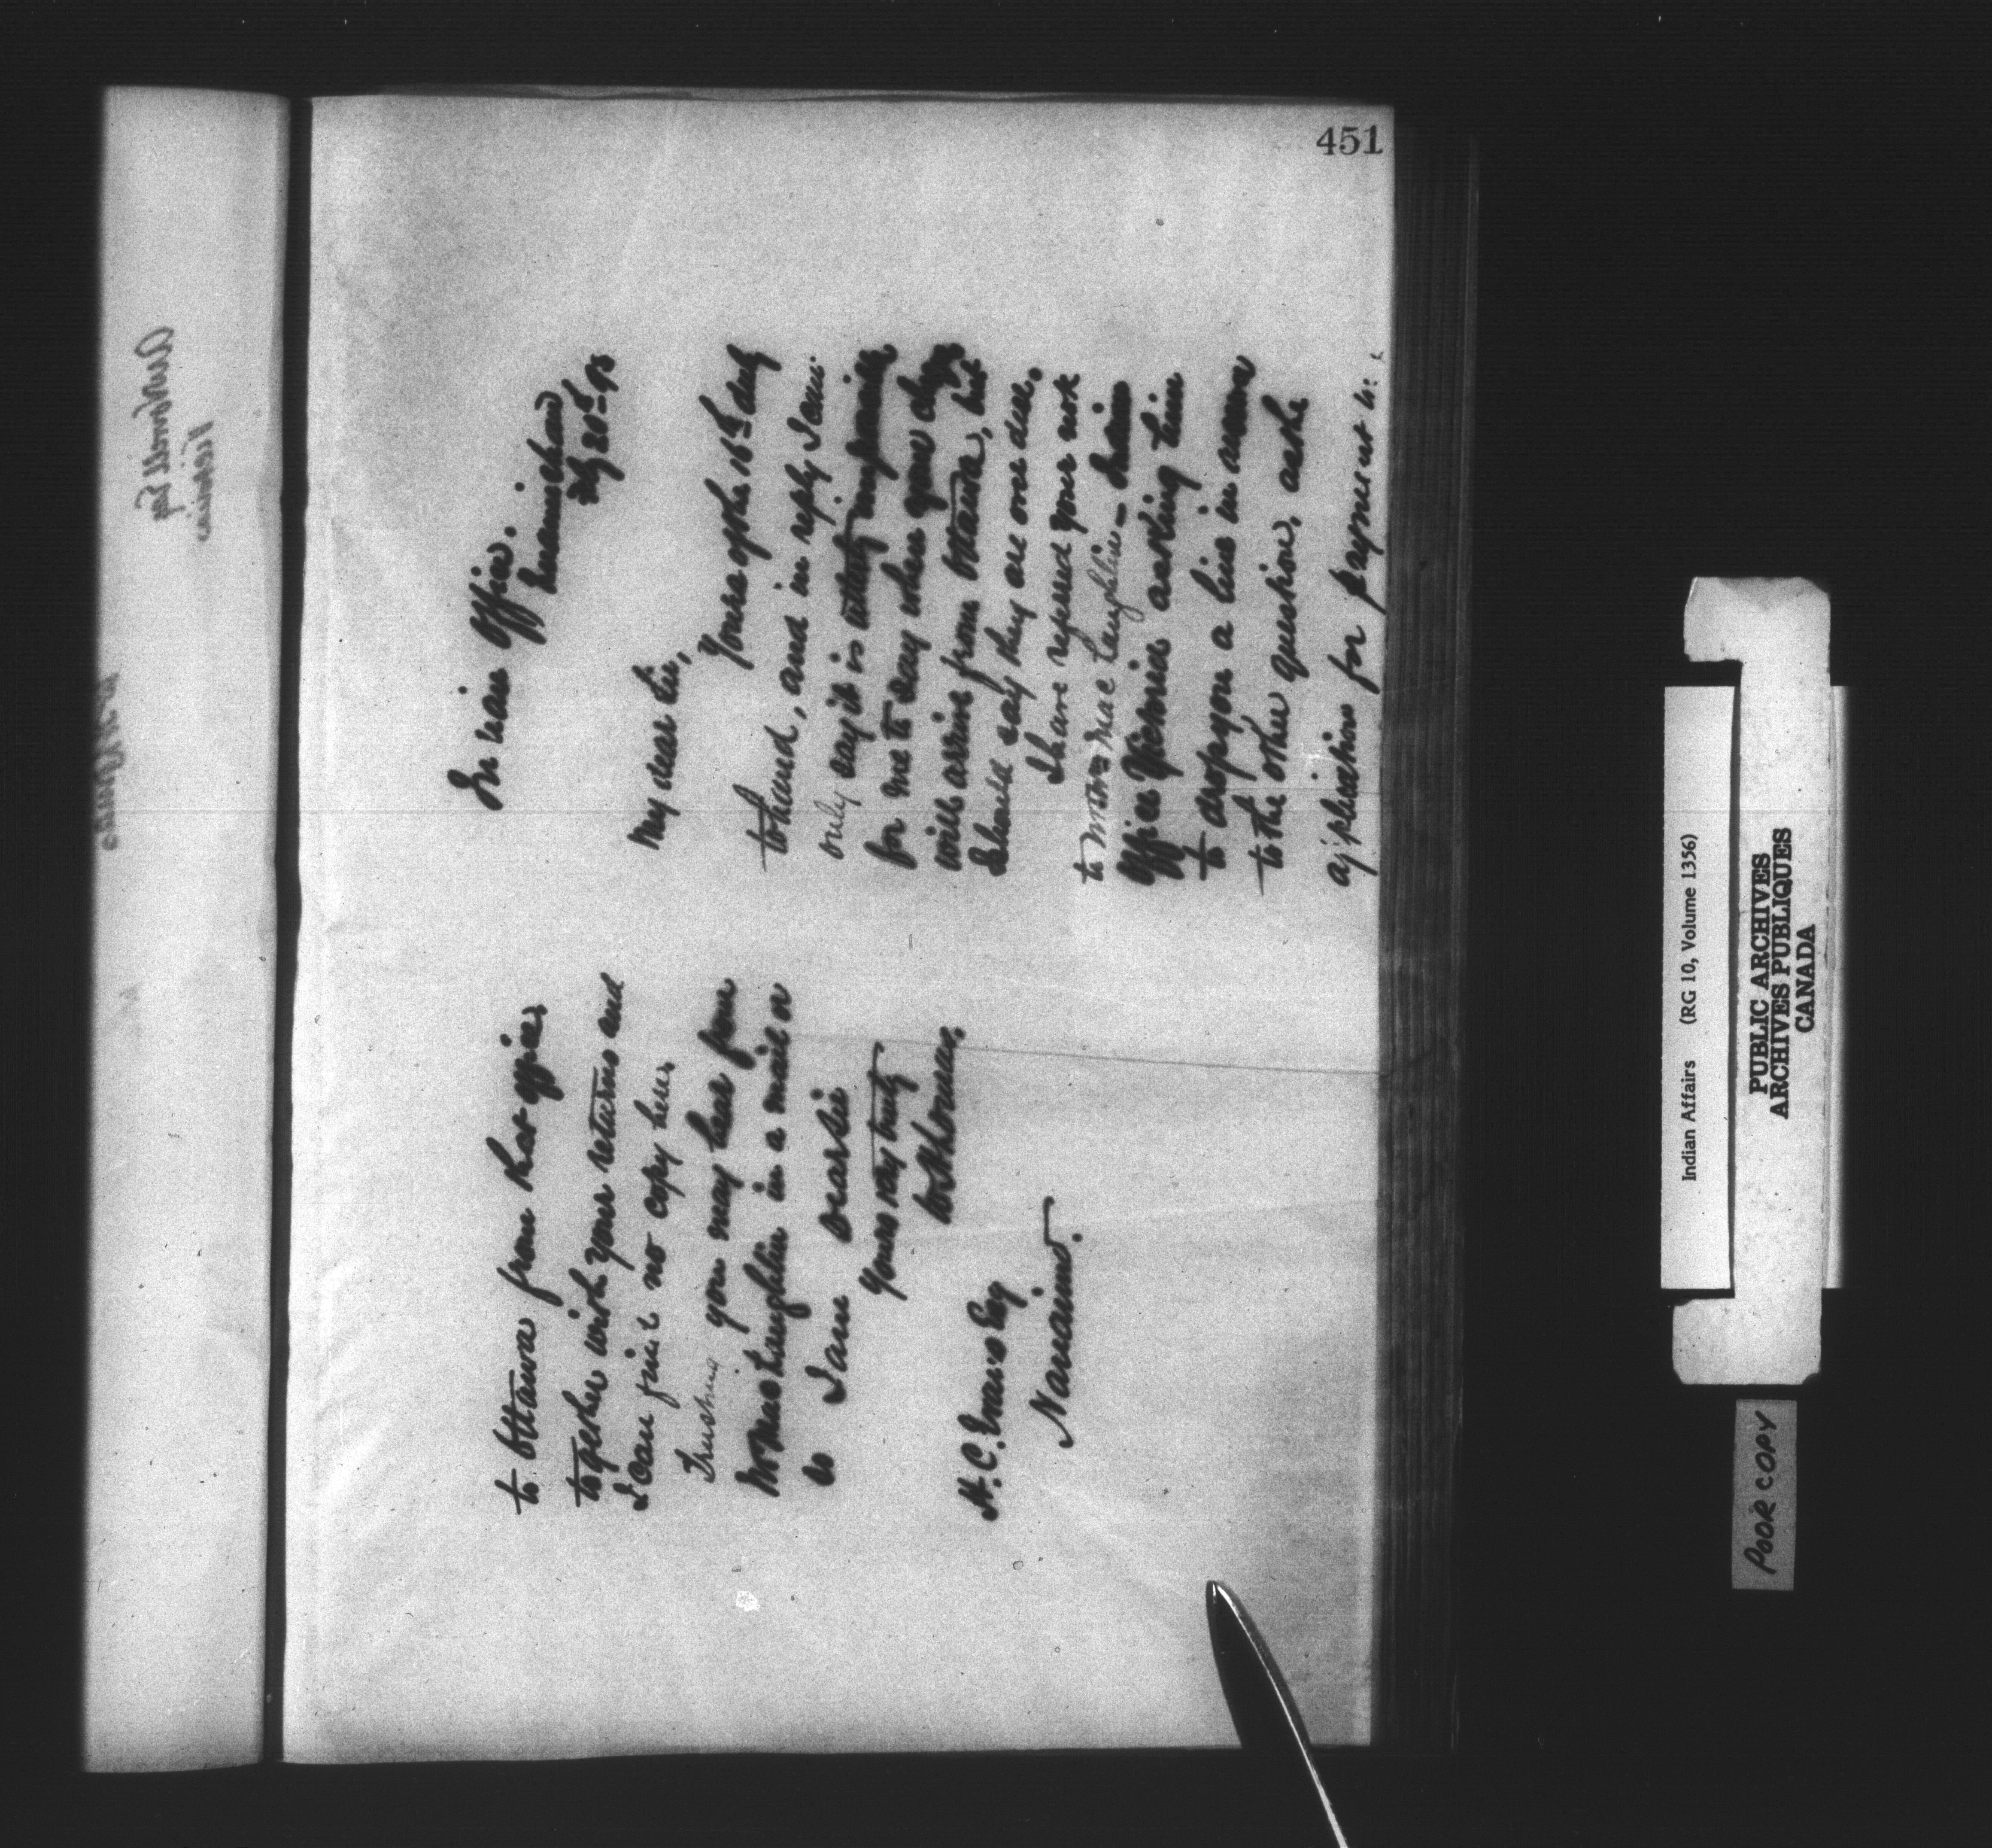 451
Indian Office.
Quamichan
July 20th 95
My dear Sir,
Yours of the 16th July
to hand, and in reply I can
only say it is utterly impossible
for me to say when your chqs
will arrive from Ottawa, but
I should say they are one due.
I have referred your note
to Mr McLaughlin - Indian
Office Victoria asking him
to drop you a line in answer
to the other question, as the
application for payment is
to Ottawa from that office,
together with your returns and
I can find no copy here.
Trusting you may hear from
Mr MacLaughlin in a mail or
so I am Dear Sir
Yours very truly
W H Lomas.
H. C. Evans Esq
Nanaimo.
Indian Affairs (RG 10, Volume 1356)
PUBLIC ARCHIVES
ARCHIVES PUBLIQUES
CANADA
POOR COPY